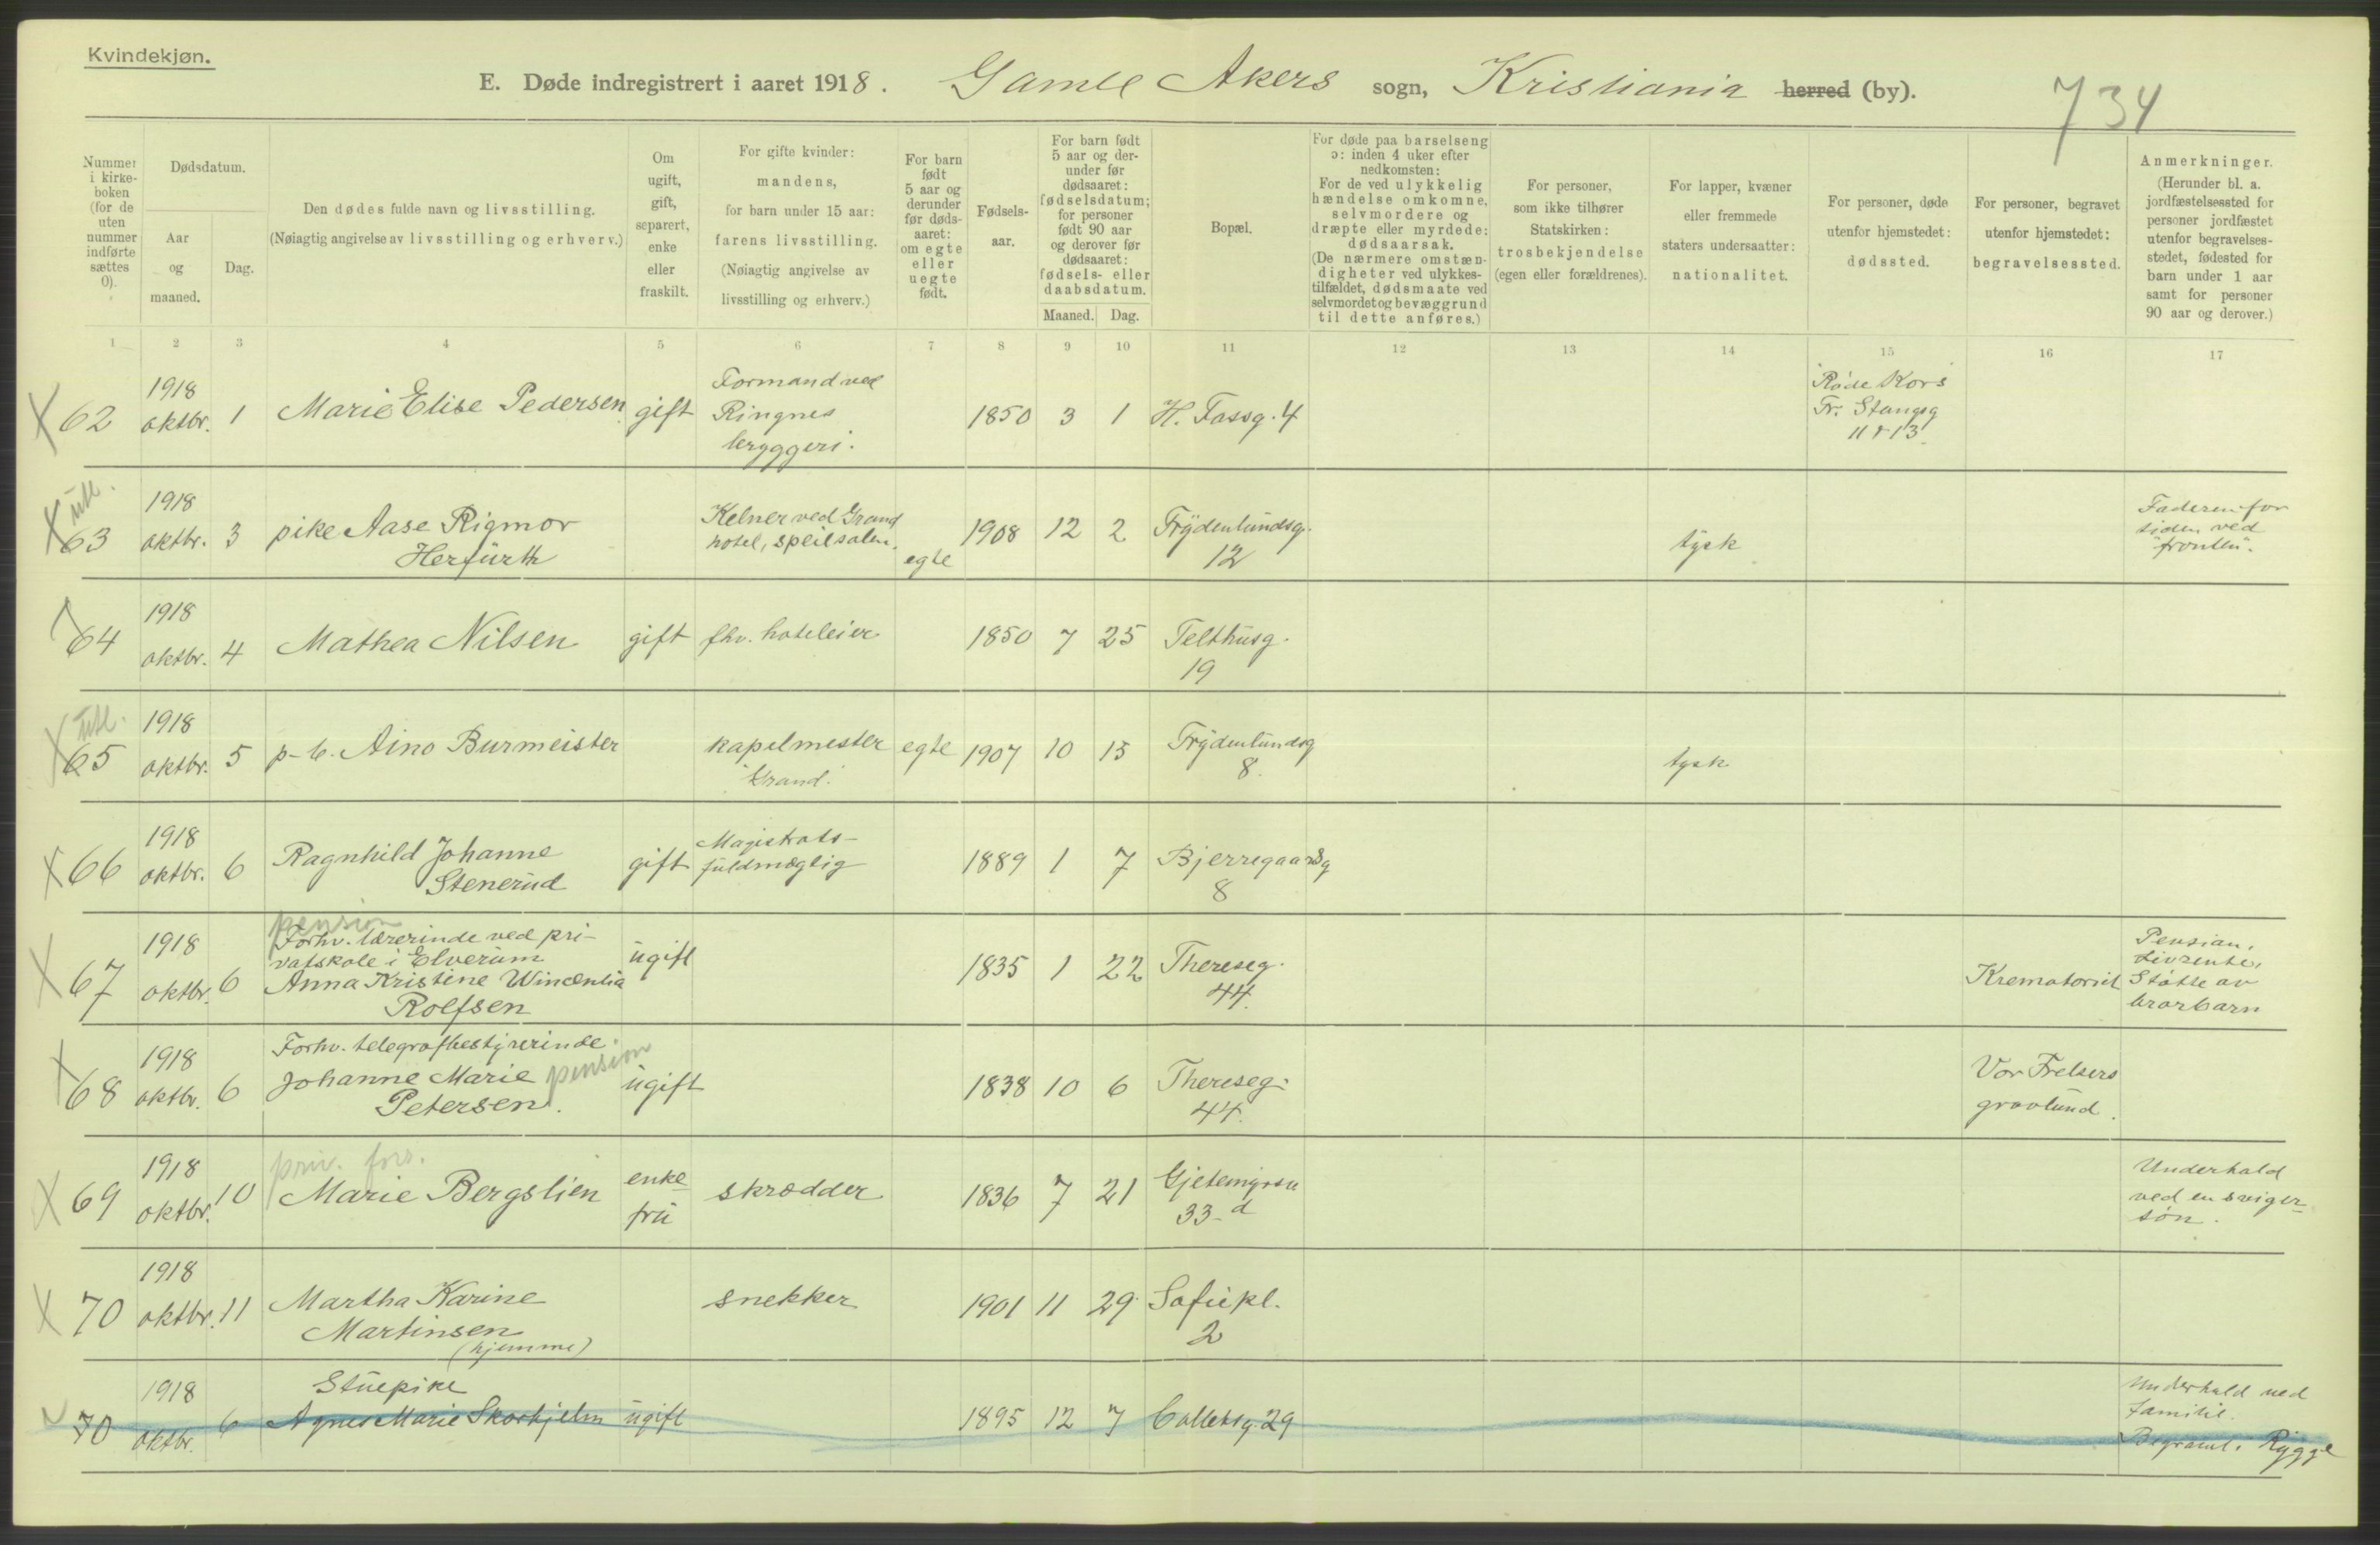 Kvindekjøn.
E. Døde indregistrert i aaret 1918. Gamle Akers sogn, Kristiania herred (by).
734
Nummer i kirkeboken (for de uten nummer indførte sættes 0).
Dødsdatum.
Aar og maaned.
Dag.
Den dødes fulde navn og livsstilling.
(Nøiagtig angivelse av livsstilling og erhverv.)
Om ugift, gift, separert, enke eller fraskilt.
For gifte kvinder: mandens, for barn under 15 aar: farens livsstilling.
(Nøiagtig angivelse av livsstilling og erhverv.)
For barn født 5 aar og derunder før dødsaaret: om egte eller uegte født.
Fødselsaar.
For barn født 5 aar og derunder før dødsaaret: fødselsdatum; for personer født 90 aar og derover før dødsaaret: fødsels- eller daabsdatum.
Maaned. Dag.
Bopæl.
For døde paa barselseng ɔ: inden 4 uker efter nedkomsten:
For de ved ulykkelig hændelse omkomne, selvmordere og dræpte eller myrdede: dødsaarsak.
(De nærmere omstændigheter ved ulykkestilfældet, dødsmaate ved selvmordet og bevæggrund til dette anføres.)
For personer, som ikke tilhører Statskirken: trosbekjendelse (egen eller forældrenes).
For lapper, kvæner eller fremmede staters undersaatter: nationalitet.
For personer, døde utenfor hjemstedet: dødssted.
For personer, begravet utenfor hjemstedet: begravelsessted.
Anmerkninger.
(Herunder bl. a. jordfæstelsessted for personer jordfæstet utenfor begravelsesstedet, fødested for barn under 1 aar samt for personer 90 aar og derover.)
1 2 3 4 5 6 7 8 9 10 11 12 13 14 15 16 17
X 62 1918 oktbr. 1 Marie Elise Pedersen gift Formand ved Ringnes bryggeri. 1850 3 1 H. Fassg. 4 Røde Kors Fr. Stangsg 11 & 13.
X utl. 63 1918 oktbr. 3 pike Aase Rigmor Herfurth Kelner ved Grand hotel, speilsalen. egte 1908 12 2 Frydenlundsg. 12 tysk Faderen for tiden ved "fronten".
64 1918 oktbr. 4 Mathea Nilsen gift fhv. hoteleier 1850 7 25 Telthusg. 19
X utl. 65 1918 oktbr. 5 p-b. Aino Burmeister kapelmester "Grand". egte 1907 10 15 Frydenlundsg 8. tysk
X 66 1918 oktbr. 6 Ragnhild Johanne Stenerud gift Magistratsfuldmægtig 1889 1 7 Bjerregaardsg 8
X 67 1918 oktbr. 6 pension Forhv. lærerinde ved privatskole i Elverum Anna Kristine Wincentia Rolfsen ugift 1835 1 22 Thereseg. 44. Krematoriet Pension, Livrente, Støtte av brorbarn
X 68 1918 oktbr. 6 Forhv. telegrafbestyrerinde. Johanne Marie Petersen. pension ugift 1838 10 6 Thereseg. 44. Vor Frelsers gravlund.
X 69 1918 oktbr. 10 priv. fors. Marie Bergslien enkefru skrædder 1836 7 21 Gjetemyrsv 33-d Underhold ved en svigersøn.
X 70 1918 oktbr. 11 Martha Karine Martinsen (hjemme) snekker 1901 11 29 Sofiepl. 2
70 1918 oktbr. 6 Stuepike Agnes Marie Skorhjelm ugift 1895 12 7 Colletsg. 29 Underhold ved familie. Begravet i Rygge